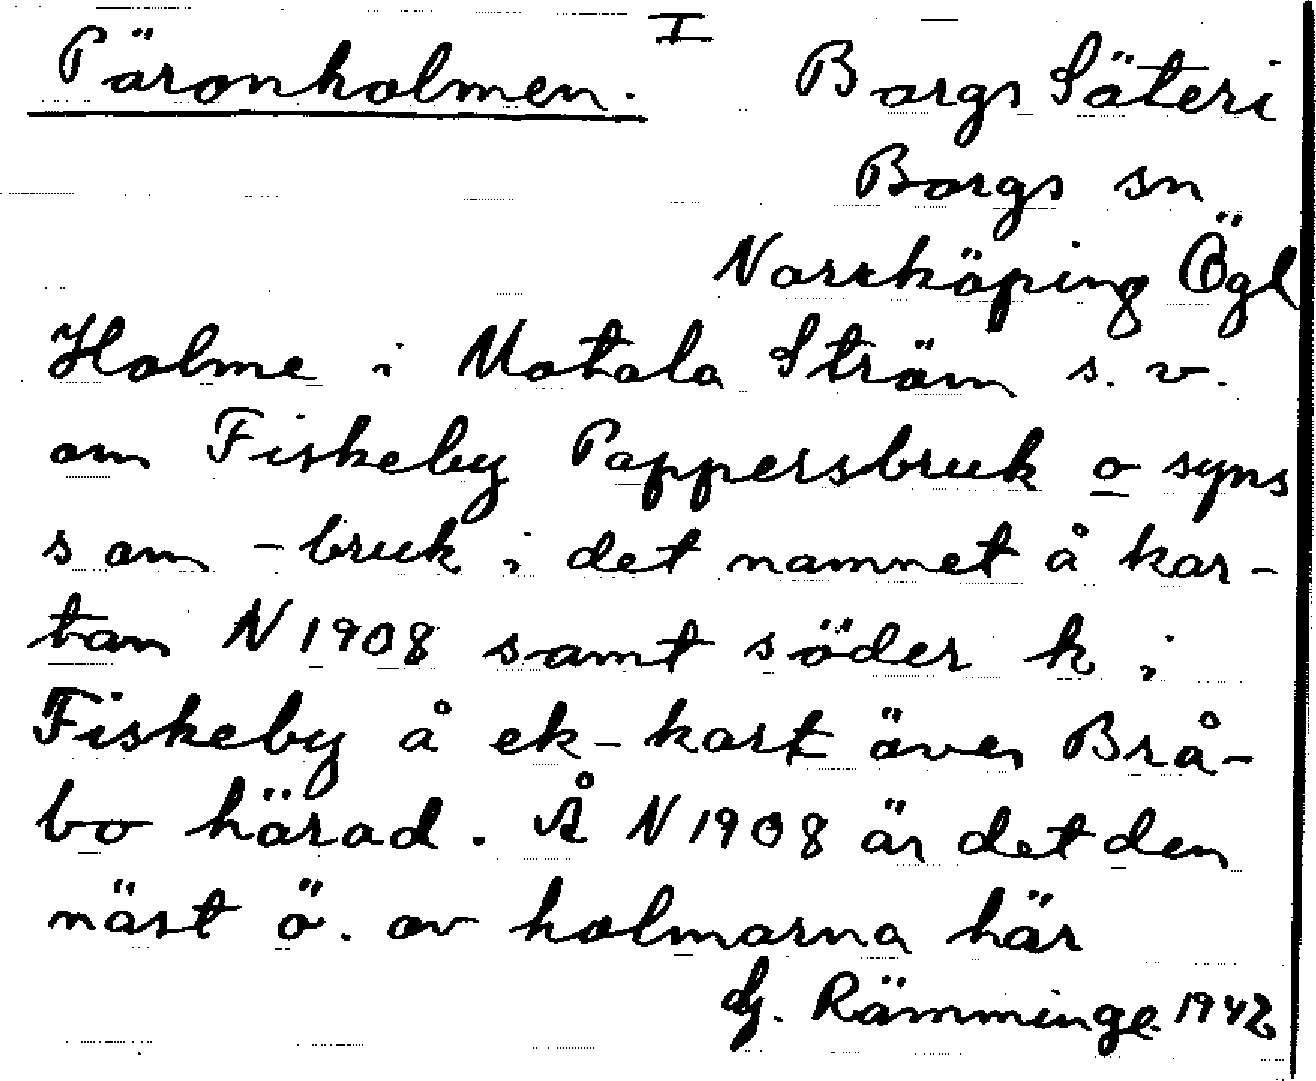 I
Päronholmen. Borgs Säteri
Borgs sn
Norrköping Ögl
Holme i Motala Ström s. v.
om Fiskeby Pappersbruk o syns
s om -bruk i det namnet å kar-
tan N 1908 samt söder k i
Fiskeby å ek-kart över Brå-
bo härad. Å N 1908 är det den
näst ö. av holmarna här
Hj. Rämminge 1942